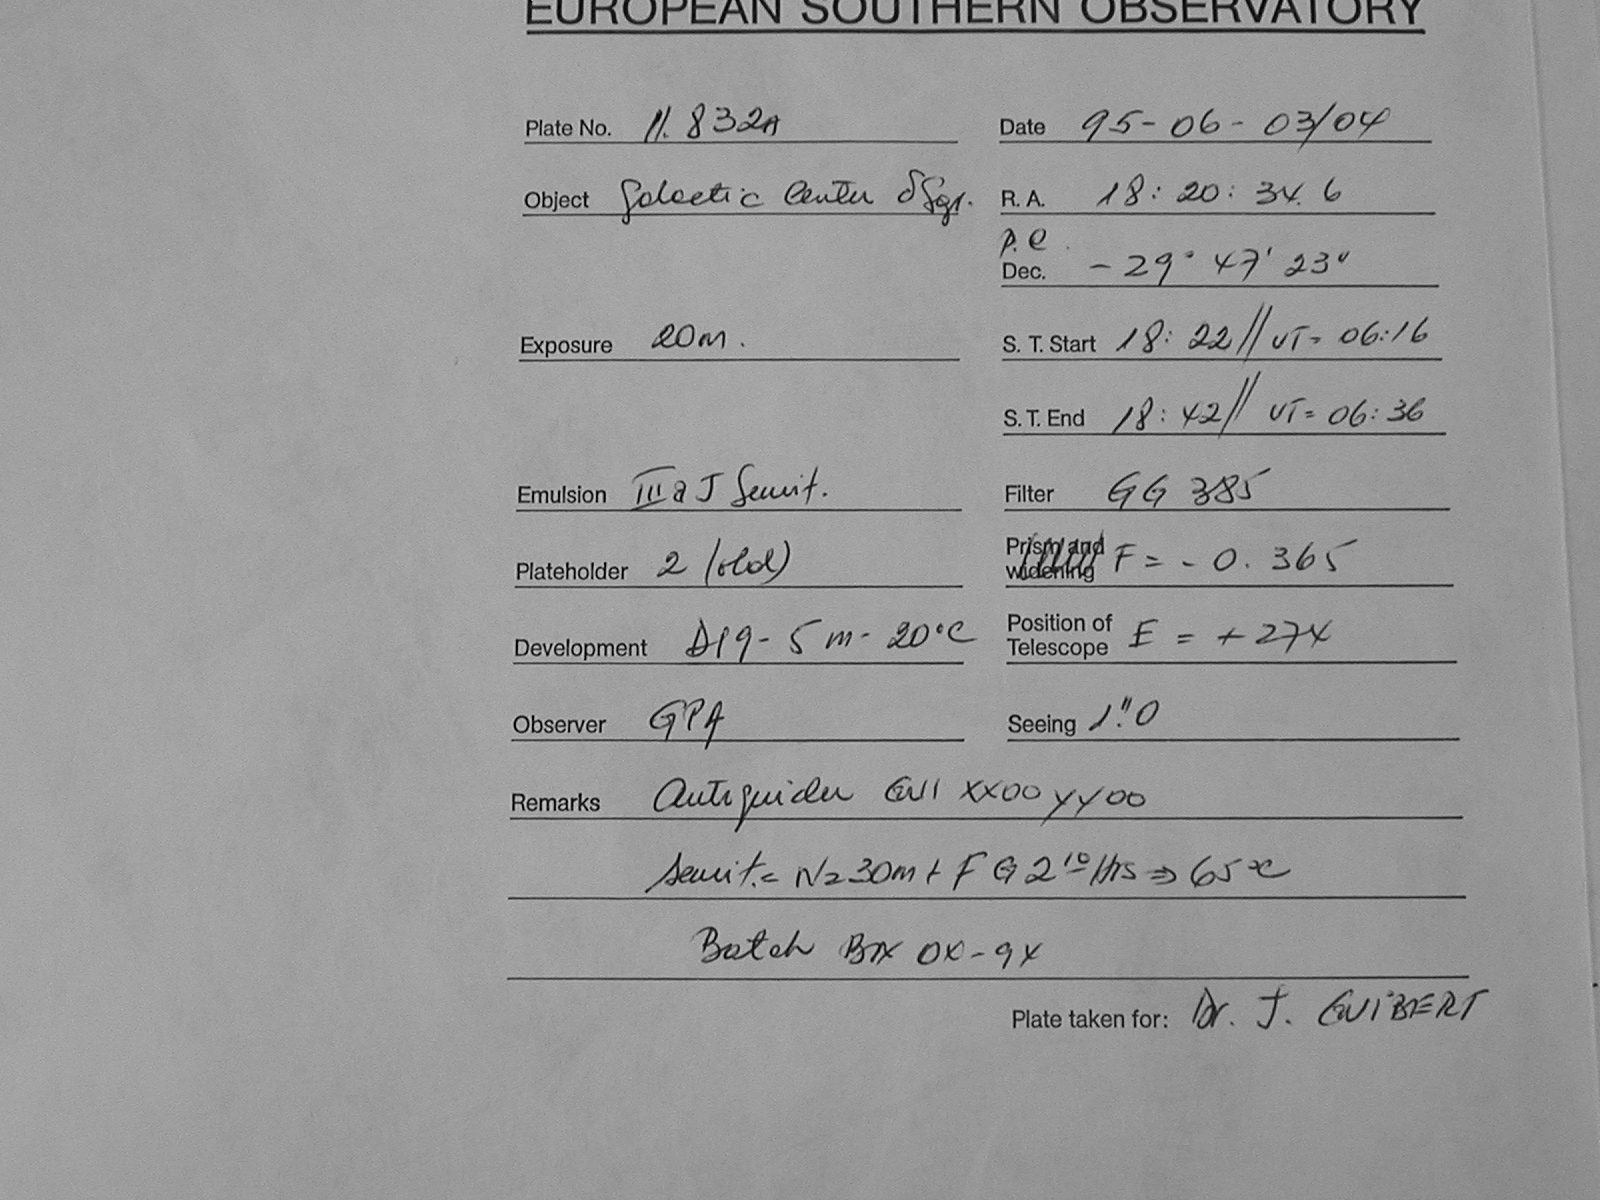 EUROPEAN SOUTHERN OBSERVATORY
Plate No. 11.832A Date 95-06-03/04
Object Galactic Center δSgr. R. A. 18:20:34.6
P.e.
Dec. -29° 47' 23"
Exposure 20m. S. T. Start 18:22// UT= 06:16
S. T. End 18:42// UT= 06:36
Emulsion IIIaJ Sensit. Filter GG 385
Plateholder 2 (old) Prism and widening F = -0.365
Development D19-5m-20°C Position of Telescope E = +274
Observer GPA Seeing 1."0
Remarks Autoguider XX00 YY00
Sensit.= N=30m+ FG 2 Hrs ⇒ 65°C
Batch Box 0X-94
Plate taken for: Dr. J. GUIBERT